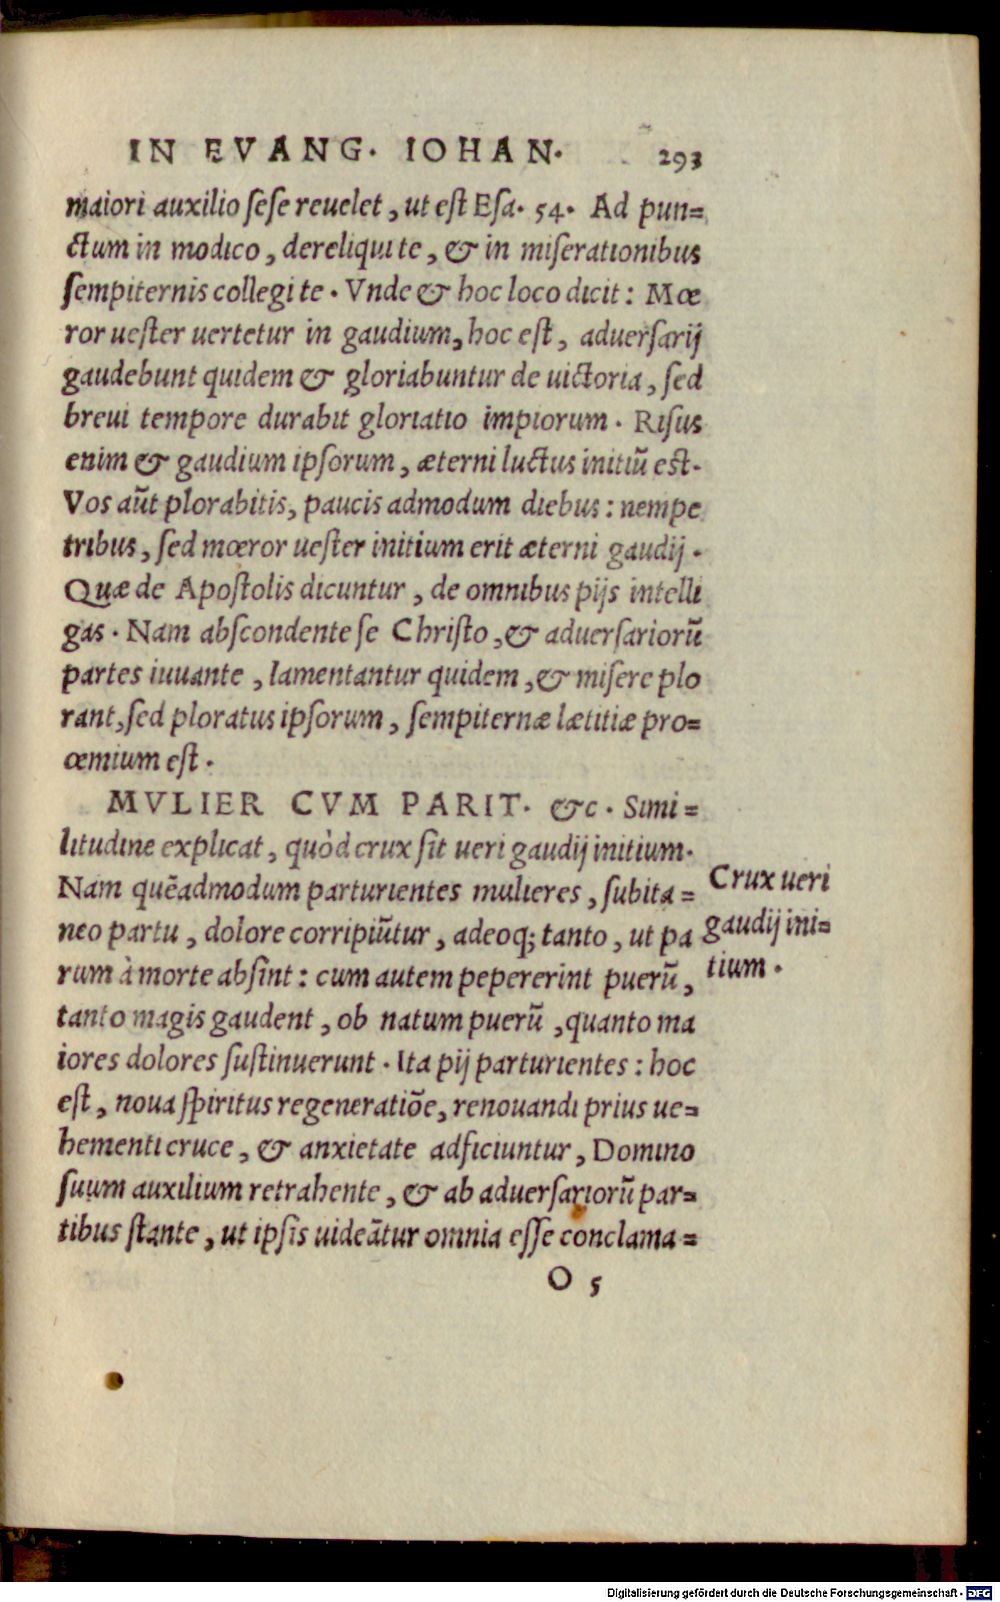 IN EVANG. IOHAN. 293
maiori auxilio sese reuelet, ut est Esa. 54. Ad pun=
ctum in modico, dereliqui te, & in miserationibus
sempiternis collegi te. Vnde & hoc loco dicit: Mœ
ror uester uertetur in gaudium, hoc est, aduersarij
gaudebunt quidem & gloriabuntur de uictoria, sed
breui tempore durabit gloriatio impiorum. Risus
enim & gaudium ipsorum, æterni luctus initiũ est.
Vos aũt plorabitis, paucis admodum diebus: nempe
tribus, sed mœror uester initium erit æterni gaudij.
Quæ de Apostolis dicuntur, de omnibus pijs intelli
gas. Nam abscondente se Christo, & aduersariorũ
partes iuuante, lamentantur quidem, & misere plo
rant, sed ploratus ipsorum, sempiternæ lætitiæ pro=
œmium est.
MVLIER CVM PARIT. &c. Simi=
litudine explicat, quòd crux sit ueri gaudij initium.
Nam quẽadmodum parturientes mulieres, subita=
neo partu, dolore corripiũtur, adeoq; tanto, ut pa
rum à morte absint: cum autem pepererint puerũ,
tanto magis gaudent, ob natum puerũ, quanto ma
iores dolores sustinuerunt. Ita pij parturientes: hoc
est, noua spiritus regeneratiõe, renouandi prius ue=
hementi cruce, & anxietate adficiuntur, Domino
suum auxilium retrahente, & ab aduersariorũ par=
tibus stante, ut ipsis uideãtur omnia esse conclama=
Crux ueri
gaudij ini=
tium.
O 5
Digitalisierung gefördert durch die Deutsche Forschungsgemeinschaft - DFG